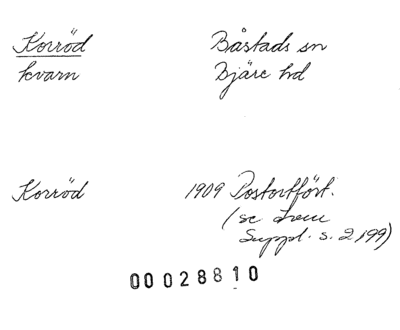 Korröd Båstads sn
kvarn Bjäre hd
Korröd 1909 Postortfört.
(se även
Suppl. s. 2,199)
00028810